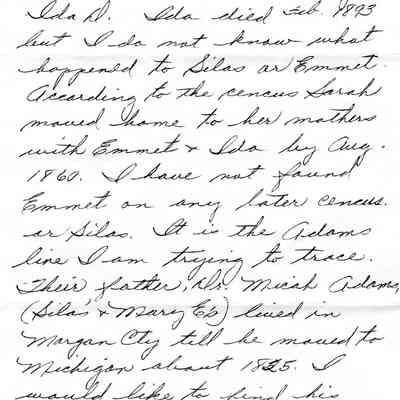 Ida D. Ida died Feb. 1893
but I do not know what
happened to Silas or Emmet.
According to the cencus Sarah
moved home to her mothers
with Emmet + Ida by Aug.
1860. I have not found
Emmet on any later cencus.
or Silas. It is the Adams
line I am trying to trace.
Their father, Dr. Micah Adams,
(Silas + Mary E's) lived in
Morgan Cty till he moved to
Michigan about 1835. I
would like to find his